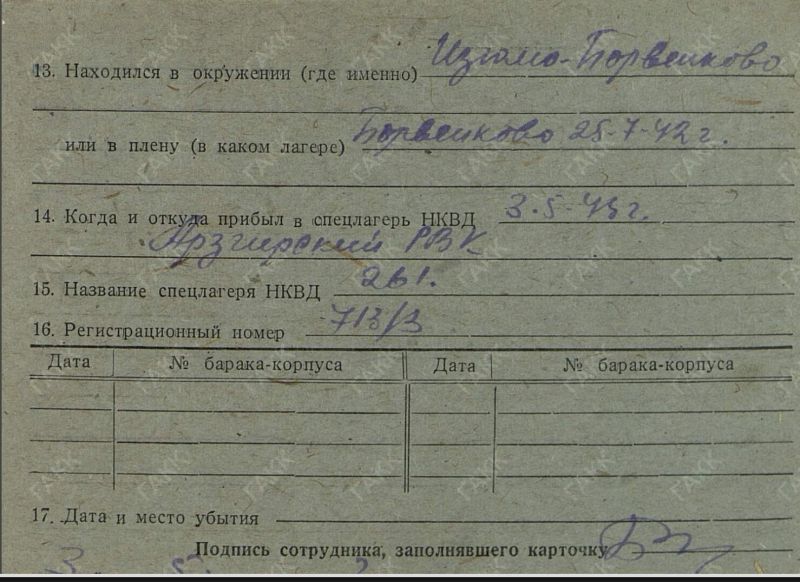 13. Находился в окружении (где именно) Изюмо-Борвенково
или в плену (в каком лагере) Борвенково 25-7-42 г.
14. Когда и откуда прибыл в спецлагерь НКВД 3-5-43 г.
Арзгирский РВК
15. Название спецлагеря НКВД 261.
16. Регистрационный номер 713/З
Дата № барака-корпуса Дата № барака-корпуса
17. Дата и место убытия
Подпись сотрудника, заполнявшего карточку